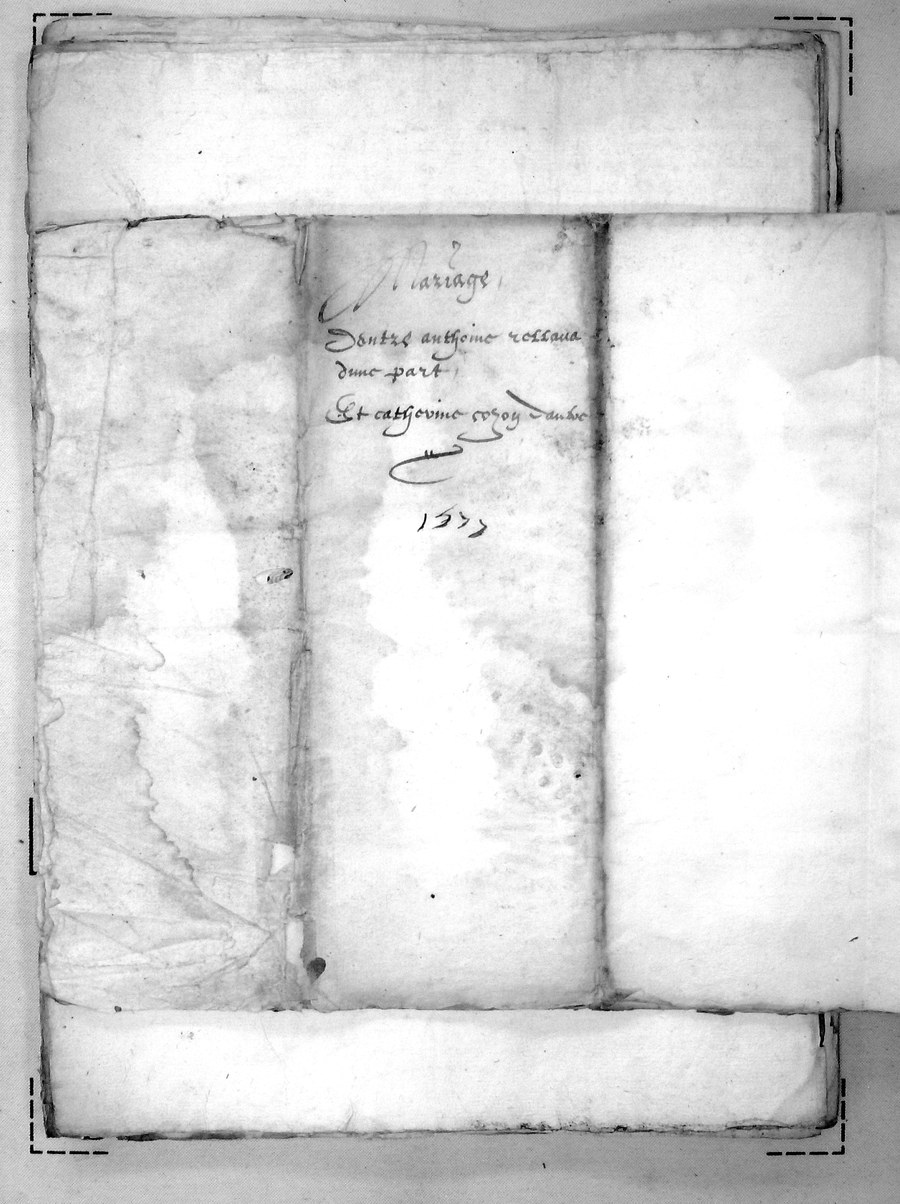 Mariage,
Dentre anthoine rellaua
dune part,
Et catherine cozon dautre
1577